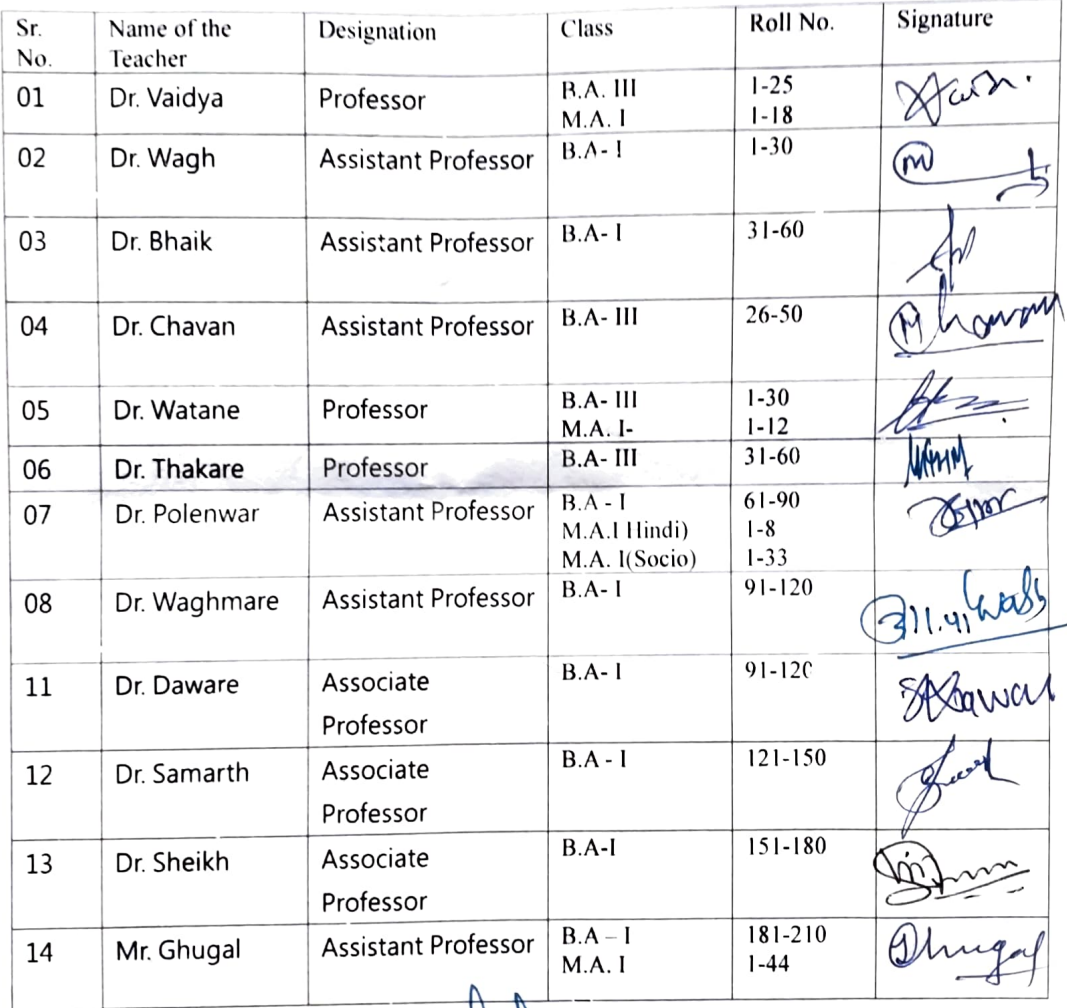 Sr. No. Name of the Teacher Designation Class Roll No. Signature
01 Dr. Vaidya Professor B.A. III 1-25
M.A. I 1-18
02 Dr. Wagh Assistant Professor B.A- I 1-30
03 Dr. Bhaik Assistant Professor B.A- I 31-60
04 Dr. Chavan Assistant Professor B.A- III 26-50
05 Dr. Watane Professor B.A- III 1-30
M.A. I- 1-12
06 Dr. Thakare Professor B.A- III 31-60
07 Dr. Polenwar Assistant Professor B.A - I 61-90
M.A.I Hindi) 1-8
M.A. I(Socio) 1-33
08 Dr. Waghmare Assistant Professor B.A- I 91-120
11 Dr. Daware Associate Professor B.A- I 91-120
12 Dr. Samarth Associate Professor B.A - I 121-150
13 Dr. Sheikh Associate Professor B.A-I 151-180
14 Mr. Ghugal Assistant Professor B.A – I 181-210 Ghugal
M.A. I 1-44